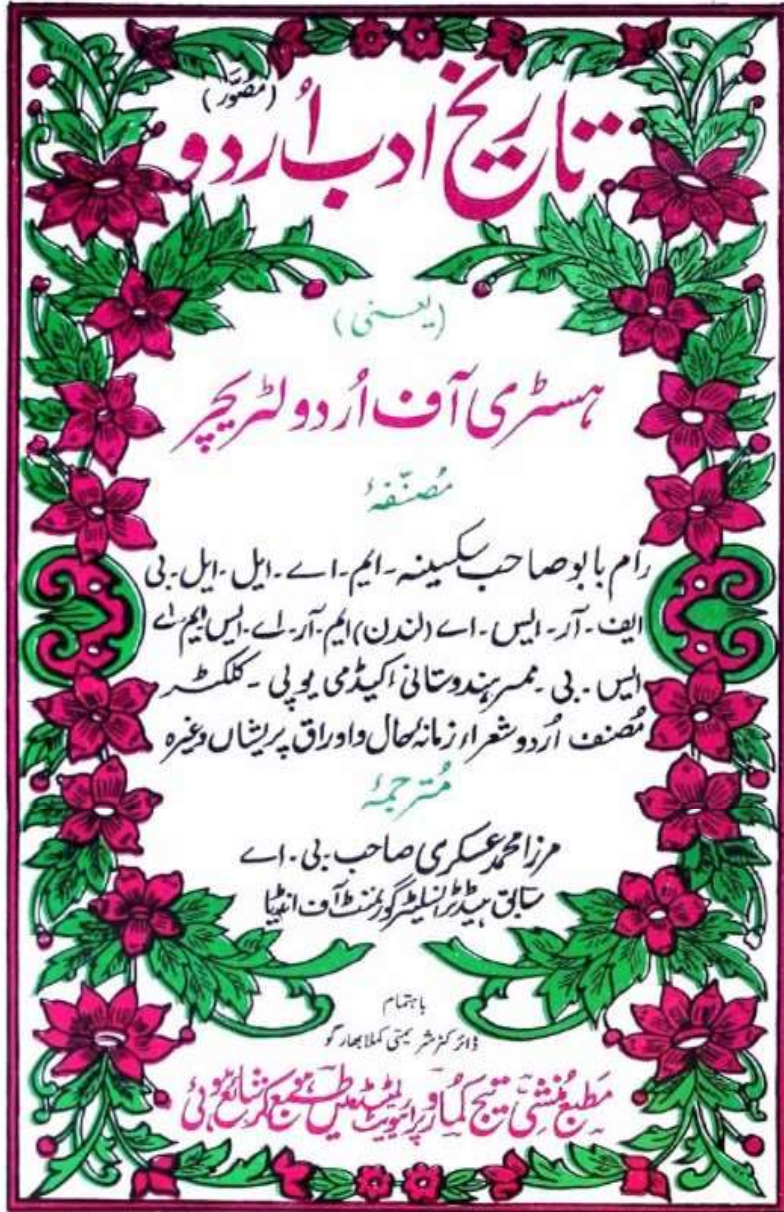 (مصوّر)
تاریخ ادب اُردو
(یعنی)
ہسٹری آف اُردو لٹریچر
مُصنّفہٗ
رام بابو صاحب سکسینہ۔ ایم۔ اے۔ ایل۔ ایل۔ بی
ایف۔ آر۔ ایس۔ اے (لندن) ایم۔ آر۔ اے۔ ایس ایم اے
ایس۔ بی۔ ممبر ہندوستانی اکیڈمی یوپی۔ کلکٹر
مُصنف اُردو شعراء زمانۂ حال و اوراق پریشاں وغیرہ
مُترجمۂ
مرزا محمد عسکری صاحب۔ بی۔ اے
سابق ہیڈ ٹرانسلیٹر گورنمنٹ آف انڈیا
باہتمام
ڈائرکٹر شریمتی کملا بھارگو
مطبع مُنشی تیج کمار پرائیویٹ لمیٹڈ میں طبع کر شائع ہوئی